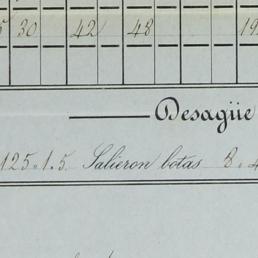 30 42 48 19
Desagüe
125.1.5. Salieron botas 8.4